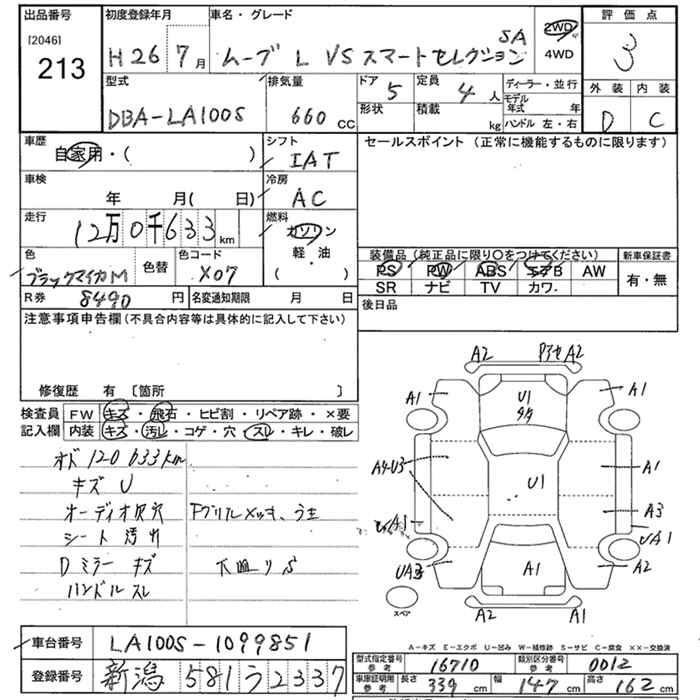 出品番号 初度登録年月 車名・グレード 評価点
[2046] 213 H 26 7月 ムーブ L VS スマートセレクション SA 2WD 4WD 3
型式 排気量 ドア 5 定員 4人 ディーラー・並行 外装 内装
DBA-LA100S 660 cc 形状 積載 kg モデル年式 年 ハンドル 左・右 D C
車歴 シフト セールスポイント (正常に機能するものに限ります)
自家用・( ) IAT
車検 冷房
年 月( 日) AC
走行 燃料
12万0千633km ガソリン
軽・油
( )
色 色替 色コード 装備品 (純正品に限り○をつけてください) 新車保証書
ブラックマイカM X07 PS PW ABS エアB AW 有・無
SR ナビ TV カワ.
R券 8490 円 名変通知期限 月 日 後日品
注意事項申告欄 (不具合内容等は具体的に記入して下さい)
修復歴 有 〔箇所 〕
検査員 FW キズ・飛石・ヒビ割・リペア跡・×要
記入欄 内装 キズ・汚レ・コゲ・穴・スレ・キレ・破レ
オド 120633km
キズ U
オーディオ穴穴 Fグリルメッキ、うキ
シート 汚れ
Dミラー キズ 下廻りS
ハンドル スレ
A2 A2
A1 U1 A1
A4・U3 U1 A1
A3 A3
UA1
UA3 A1 A2
スペア A2 A1
A-キズ E-エクボ U-凹み W-補修跡 S-サビ C-腐食 XX-交換済
車台番号 LA100S-1099851
型式指定番号 参考 16710 類別区分番号 参考 0012
登録番号 新潟 581 う 2337
車庫証明用 参考 長さ 339 cm 幅 147 cm 高さ 162 cm